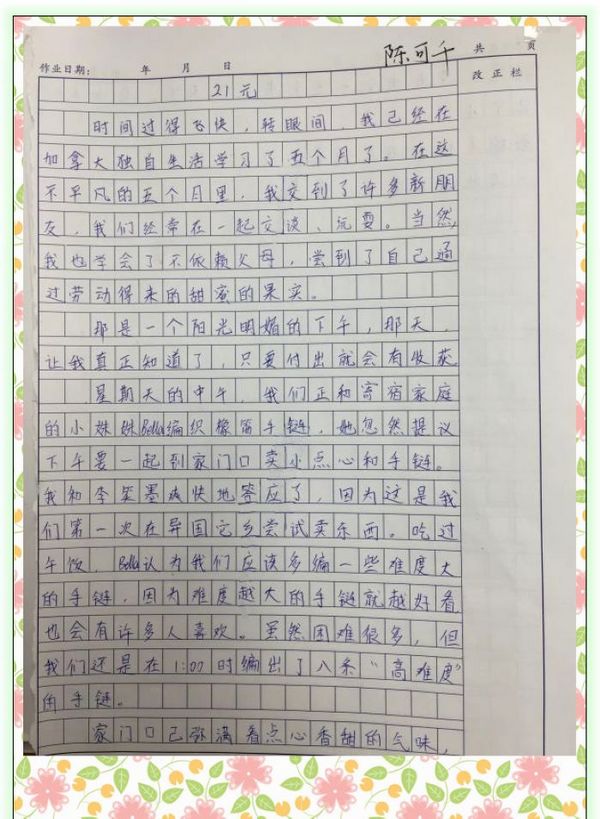 陈可千 共 页
作业日期： 年 月 日
改正栏
21元
时间过得飞快，转眼间，我已经在
加拿大独自生活学习了五个月了。在这
不平凡的五个月里，我交到了许多新朋
友，我们经常在一起交谈、玩耍。当然
我也学会了不依赖父母，尝到了自己通
过劳动得来的甜蜜的果实。
那是一个阳光明媚的下午，那天，
让我真正知道了，只要付出就会有收获
星期天的中午，我们正和寄宿家庭
的小妹妹Bella编织橡筋手链，她忽然提议
下午要一起到家门口卖小点心和手链。
我和李笑墨爽快地答应了，因为这是我
们第一次在异国它乡尝试卖东西。吃过
午饭，Bella认为我们应该多编一些难度大
的手链，因为难度越大的手链就越好看
也会有许多人喜欢。虽然困难很多，但
我们还是在1:00时编出了八条“高难度”
的手链。
家门口已弥满着点心香甜的气味，